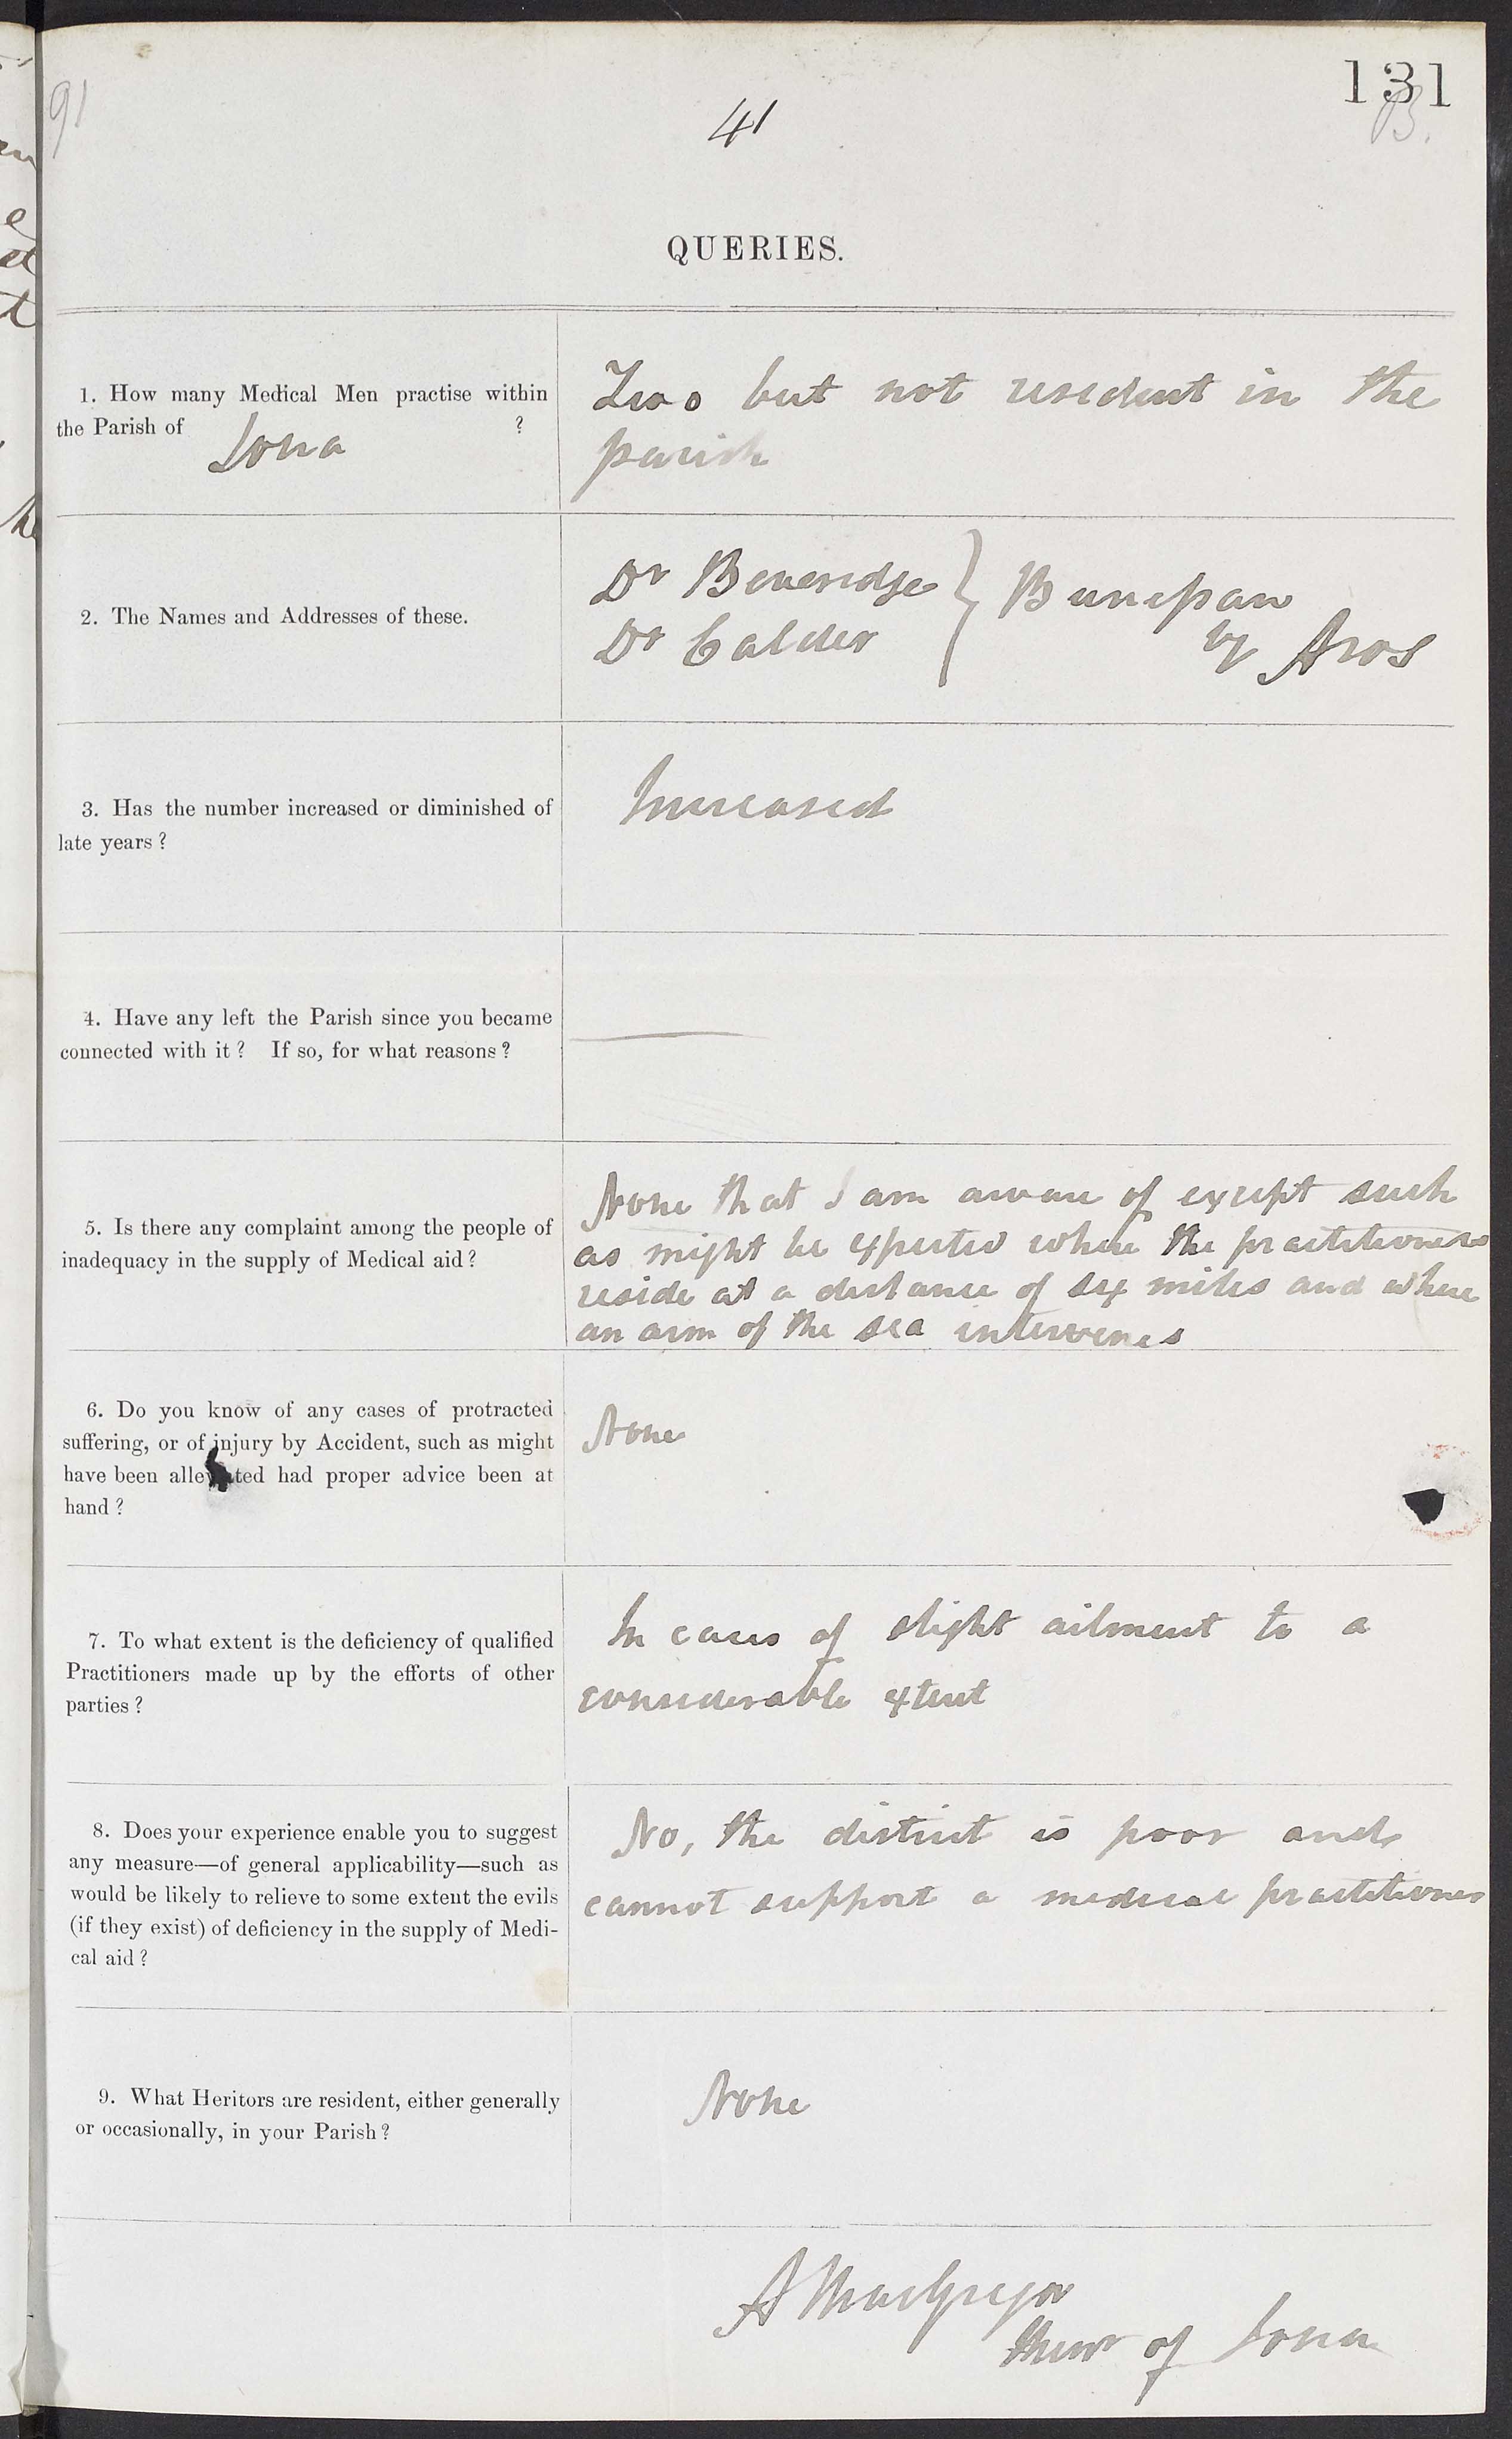 131
91
41
B.
QUERIES.
1. How many Medical Men practise within
the Parish of Iona ?
Two but not resident in the
parish
2. The Names and Addresses of these.
Dr Beveridge } Bunessan
Dr Calder by Aros
3. Has the number increased or diminished of
late years?
Increased
4. Have any left the Parish since you became
connected with it? If so, for what reasons?
5. Is there any complaint among the people of
inadequacy in the supply of Medical aid?
None that I am aware of except such
as might be expected where the practitioners
reside at a distance of six miles and where
an arm of the sea intervenes
6. Do you know of any cases of protracted
suffering, or of injury by Accident, such as might
have been alleviated had proper advice been at
hand?
None
7. To what extent is the deficiency of qualified
Practitioners made up by the efforts of other
parties?
In cases of slight ailment to a
considerable extent
8. Does your experience enable you to suggest
any measure—of general applicability—such as
would be likely to relieve to some extent the evils
(if they exist) of deficiency in the supply of Medi-
cal aid?
No, the district is poor and
cannot support a medical practitioner
9. What Heritors are resident, either generally
or occasionally, in your Parish?
None
A MacGregor
Minr of Iona